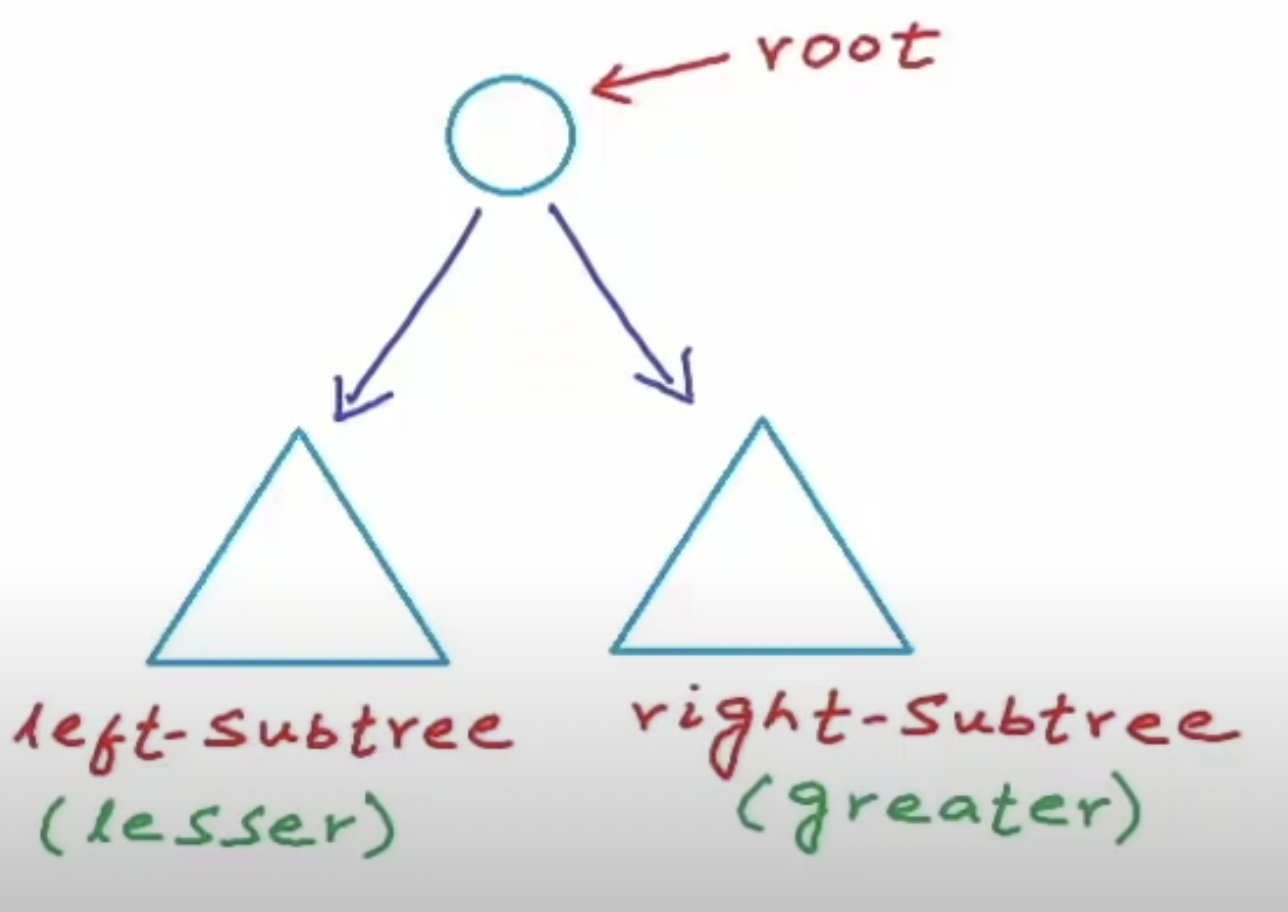 root
left-Subtree
(lesser)
right-Subtree
(greater)